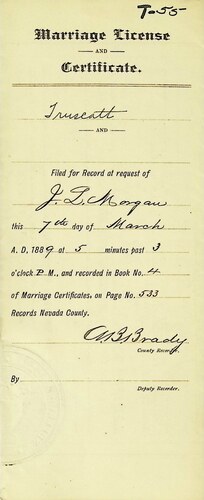 T-55
Marriage License
AND
Certificate.
Truscott
AND
Filed for Record at request of
J. L. Morgan
this 7th day of March
A. D. 1889 at 5 minutes past 3
o'clock P. M., and recorded in Book No. 4
of Marriage Certificates, on Page No. 533
Records Nevada County.
County Recorder.
By
Deputy Recorder.